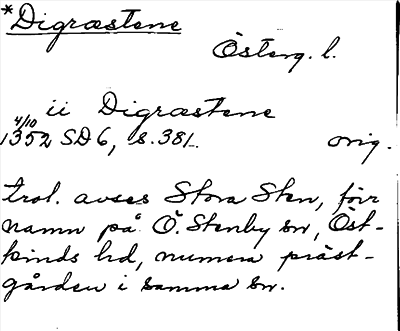 *Digræstene
Österg. l.
ii Digræstene
4/10
1352 SD 6, s. 381.
orig.
trol. avses Stora Sten, förr
namn på Ö. Stenby sn, Öst-
kinds hd, numera präst-
gården i samma sn.